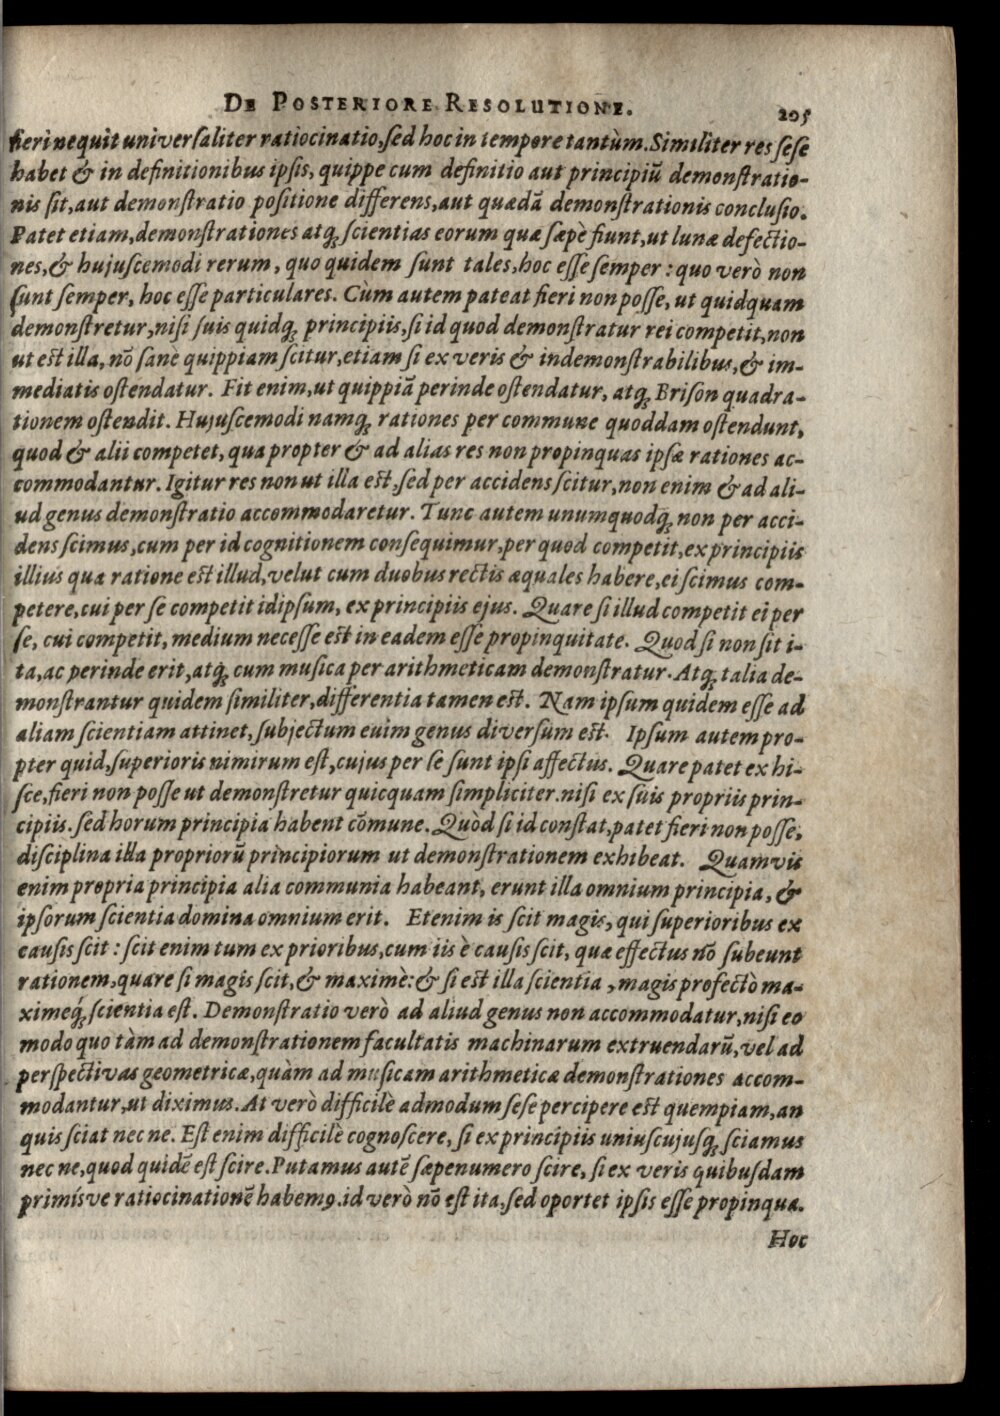 DE POSTERIORE RESOLUTIONE. 205
fieri nequit universaliter ratiocinatio, sed hoc in tempore tantùm. Similiter res sese
habet & in definitionibus ipsis, quippe cum definitio aut principiũ demonstratio-
nis sit, aut demonstratio positione differens, aut quædã demonstrationis conclusio.
Patet etiam, demonstrationes atq; scientias eorum quæ sæpè fiunt, ut lunæ defectio-
nes, & hujuscemodi rerum, quo quidem sunt tales, hoc esse semper: quo verò non
sunt semper, hoc esse particulares. Cùm autem pateat fieri non posse, ut quidquam
demonstretur, nisi suis quidq; principiis, si id quod demonstratur rei competit, non
ut est illa, nõ sanè quippiam scitur, etiam si ex veris & indemonstrabilibus, & im-
mediatis ostendatur. Fit enim, ut quippiã perinde ostendatur, atq; Brison quadra-
tionem ostendit. Hujuscemodi namq; rationes per commune quoddam ostendunt,
quod & alii competet, qua propter & ad alias res non propinquas ipsæ rationes ac-
commodantur. Igitur res non ut illa est, sed per accidens scitur, non enim & ad ali-
ud genus demonstratio accommodaretur. Tunc autem unumquodq; non per acci-
dens scimus, cum per id cognitionem consequimur, per quod competit, ex principiis
illius quæ ratione est illud, velut cum duobus rectis æquales habere, ei scimus com-
petere, cui per se competit idipsum, ex principiis ejus. Quare si illud competit ei per
se, cui competit, medium necesse est in eadem esse propinquitate. Quod si non sit i-
ta, ac perinde erit, atq; cum musica per arithmeticam demonstratur. Atq; talia de-
monstrantur quidem similiter, differentia tamen est. Nam ipsum quidem esse ad
aliam scientiam attinet, subjectum euim genus diversum est. Ipsum autem pro-
pter quid, superioris nimirum est, cujus per se sunt ipsi affectus. Quare patet ex hi-
sce, fieri non posse ut demonstretur quicquam simpliciter. nisi ex suis propriis prin-
cipiis. sed horum principia habent cõmune. Quòd si id constat, patet fieri non posse,
disciplina illa propriorũ principiorum ut demonstrationem exhibeat. Quamvis
enim propria principia alia communia habeant, erunt illa omnium principia, &
ipsorum scientia domina omnium erit. Etenim is scit magis, qui superioribus ex
causis scit: scit enim tum ex prioribus, cum iis è causis scit, quæ effectus nõ subeunt
rationem, quare si magis scit, & maximè: & si est illa scientia, magis profectò ma-
ximeq́; scientia est. Demonstratio verò ad aliud genus non accommodatur, nisi eo
modo quo tàm ad demonstrationem facultatis machinarum extruendarũ, vel ad
perspectivas geometricæ, quàm ad musicam arithmeticæ demonstrationes accom-
modantur, ut diximus. At verò difficilè admodum sese percipere est quempiam, an
quis sciat nec ne. Est enim difficilè cognoscere, si ex principiis uniuscujusq; sciamus
nec ne, quod quidẽ est scire. Putamus autẽ sæpenumero scire, si ex veris quibusdam
primísve ratiocinationẽ habemꝰ. id verò nõ est ita, sed oportet ipsis esse propinqua.
Hoc